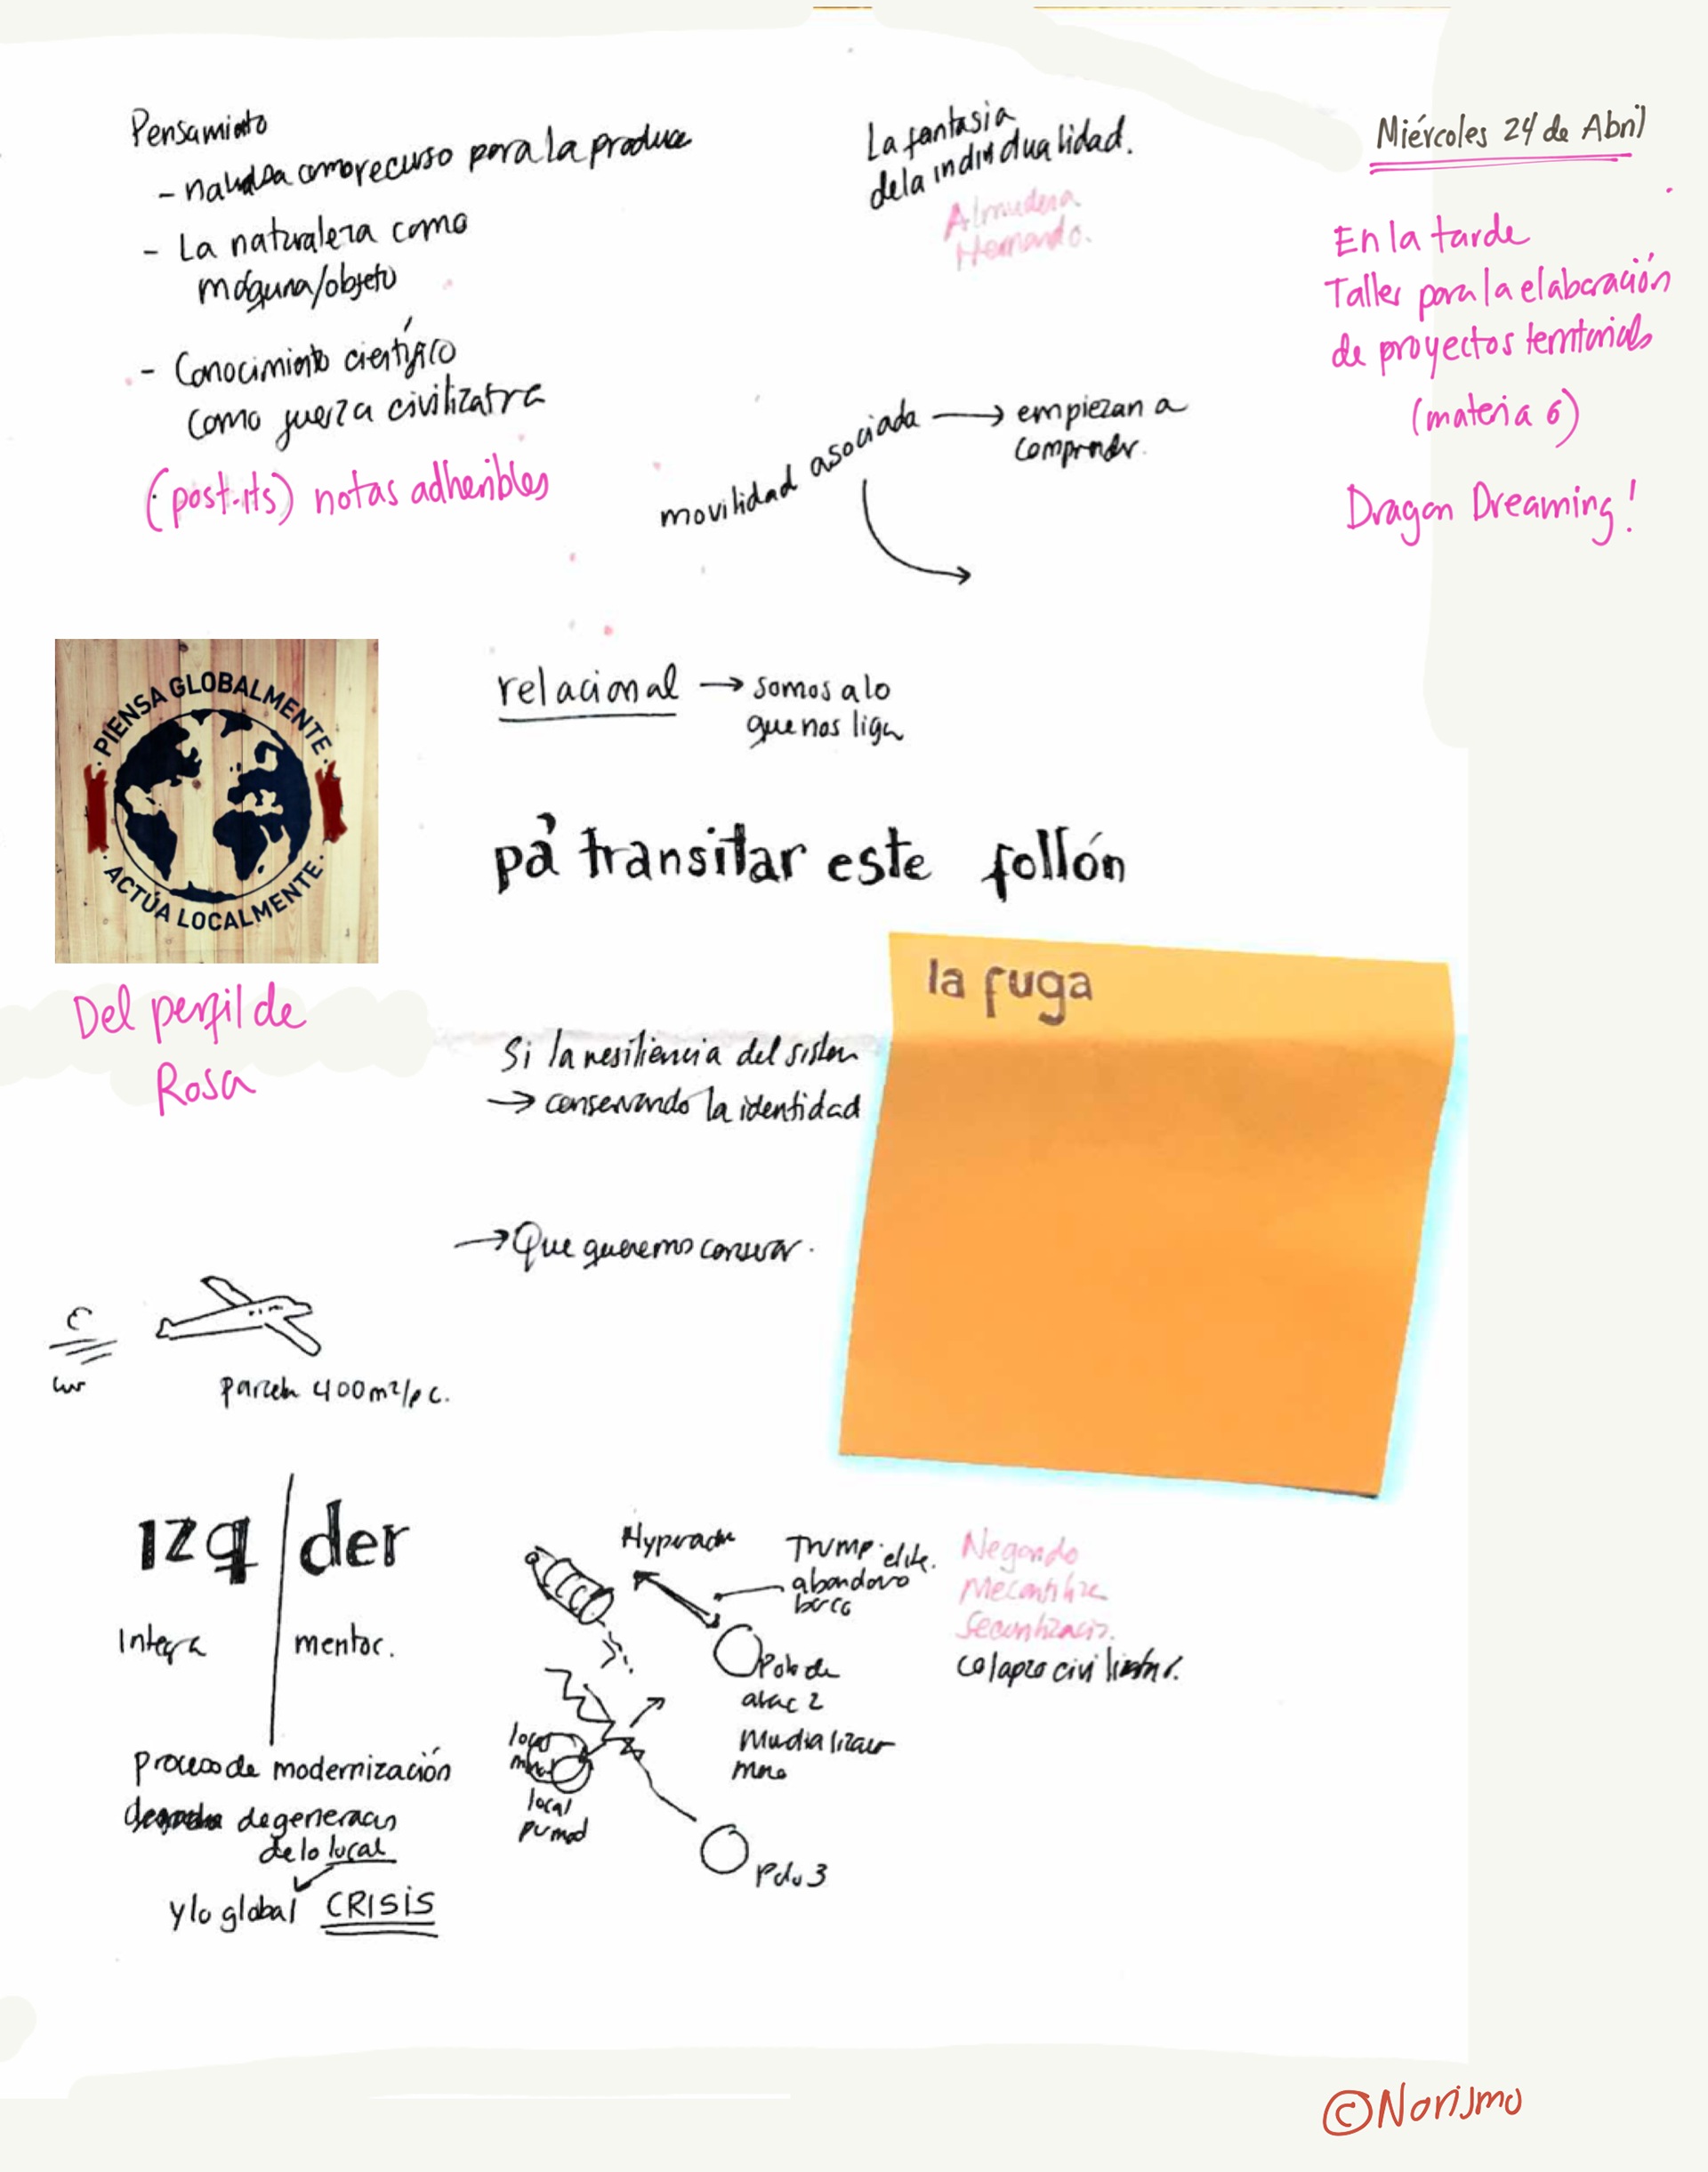 Miércoles 24 de Abril
Pensamiento
- como recurso para la produce
- La naturaleza como
máquina/objeto
- Conocimiento científico
como fuerza civilizatra
(post-its) notas adheribles
La fantasia
de la individualidad.
Almudena
Hernando.
En la tarde
Taller para la elaboración
de proyectos territoriales
(materia 6)
Dragon Dreaming!
movilidad asociada → empiezan a
comprender.
relacional → somos a lo
que nos liga
· PIENSA GLOBALMENTE ·
· ACTÚA LOCALMENTE ·
Del perfil de
Rosa
pa' transitar este follón
la fuga
Si la resiliencia del
→ conservando la identidad
→ Que queremos
400m²/pc.
izq / der
Integra mentoc.
Trump elite.
abandono
barco
Negando
colapso
Polo de
atrac 2
local
local
Polo 3
Proceso de modernización
de lo local
y lo global CRISIS
©Norijmo